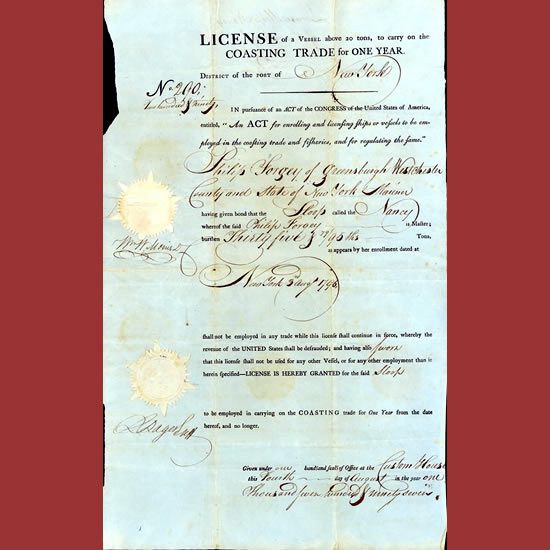 LICENSE of a VESSEL above 20 tons, to carry on the
COASTING TRADE for ONE YEAR.
DISTRICT OF THE PORT OF New York
No. 290;
two hundred & ninety,
IN pursuance of an ACT of the CONGRESS of the United States of America,
entitled, "An ACT for enrolling and licensing ships or vessels to be em-
ployed in the coasting trade and fisheries, and for regulating the same."
Philip Forgey of Greensburgh Westchester
County and State of New York Mariner
having given bond that the Sloop called the Nancy
whereof the said Philip Forgey is Master;
burthen Thirty five 95ths Tons,
as appears by her enrollment dated at
New York 3d augt
shall not be employed in any trade while this license shall continue in force, whereby the
revenue of the UNITED States shall be defrauded; and having also sworn
that this license shall not be used for any other Vessel, or for any other employment than is
herein specified—LICENSE IS HEREBY GRANTED for the said Sloop
to be employed in carrying on the COASTING trade for One Year from the date
hereof, and no longer.
Given under one hand and seals of Office at the Custom House
this Fourth day of August in the year one
Thousand seven hundred & ninety seven.